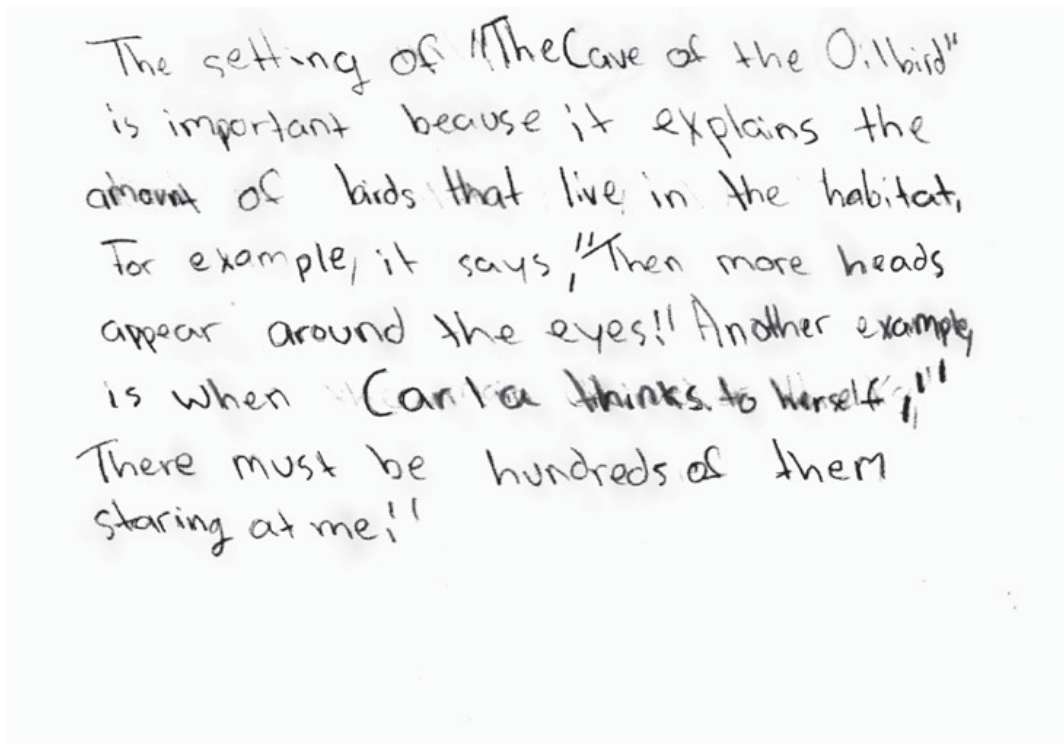 The setting of "The Cave of the Oilbird"
is important beause it explains the
amount of birds that live in the habitat.
For example, it says, "Then more heads
appear around the eyes!" Another example,
is when Carla thinks to herself, "
There must be hundreds of them
staring at me!"